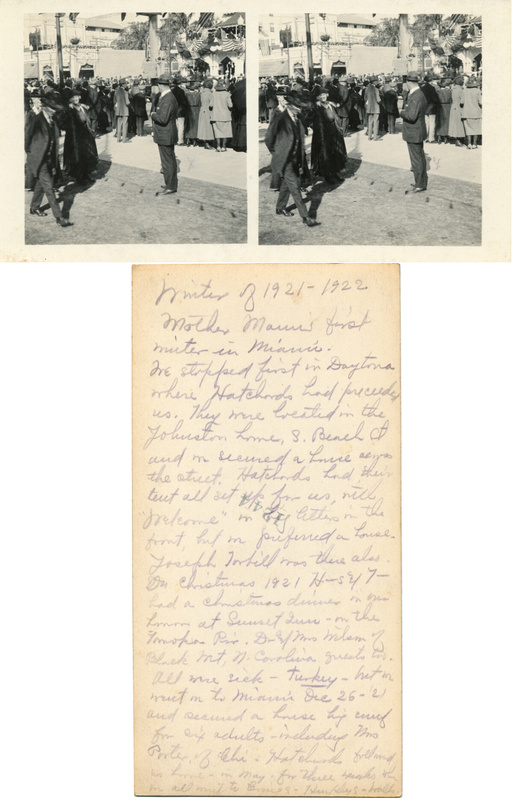 Winter of 1921-1922
Mother Mann's first
winter in Miami.
We stopped first in Daytona
where Hatchords had preceeded
us. They were located in the
Johnston home, S. Beach St
and we secured a house across
the street. Hatchords had their
tent all set up for us, with
"Welcome" in big letters in the
front, but we preferred a house.
Joseph was there also.
On Christmas 1921 H-s & T-
had a Christmas dinner in our
honor at Sunset Inn - on the
Tomoka Riv. Dr & Mrs Wilson of
Black Mt, N. Carolina guests too.
All were sick - turkey - but we
went on to Miami Dec 26-21
and secured a house big enuf
for six adults - including Mrs
Porter of Chi - Hatchords followed
us home - in May - for three weeks then
we all went to